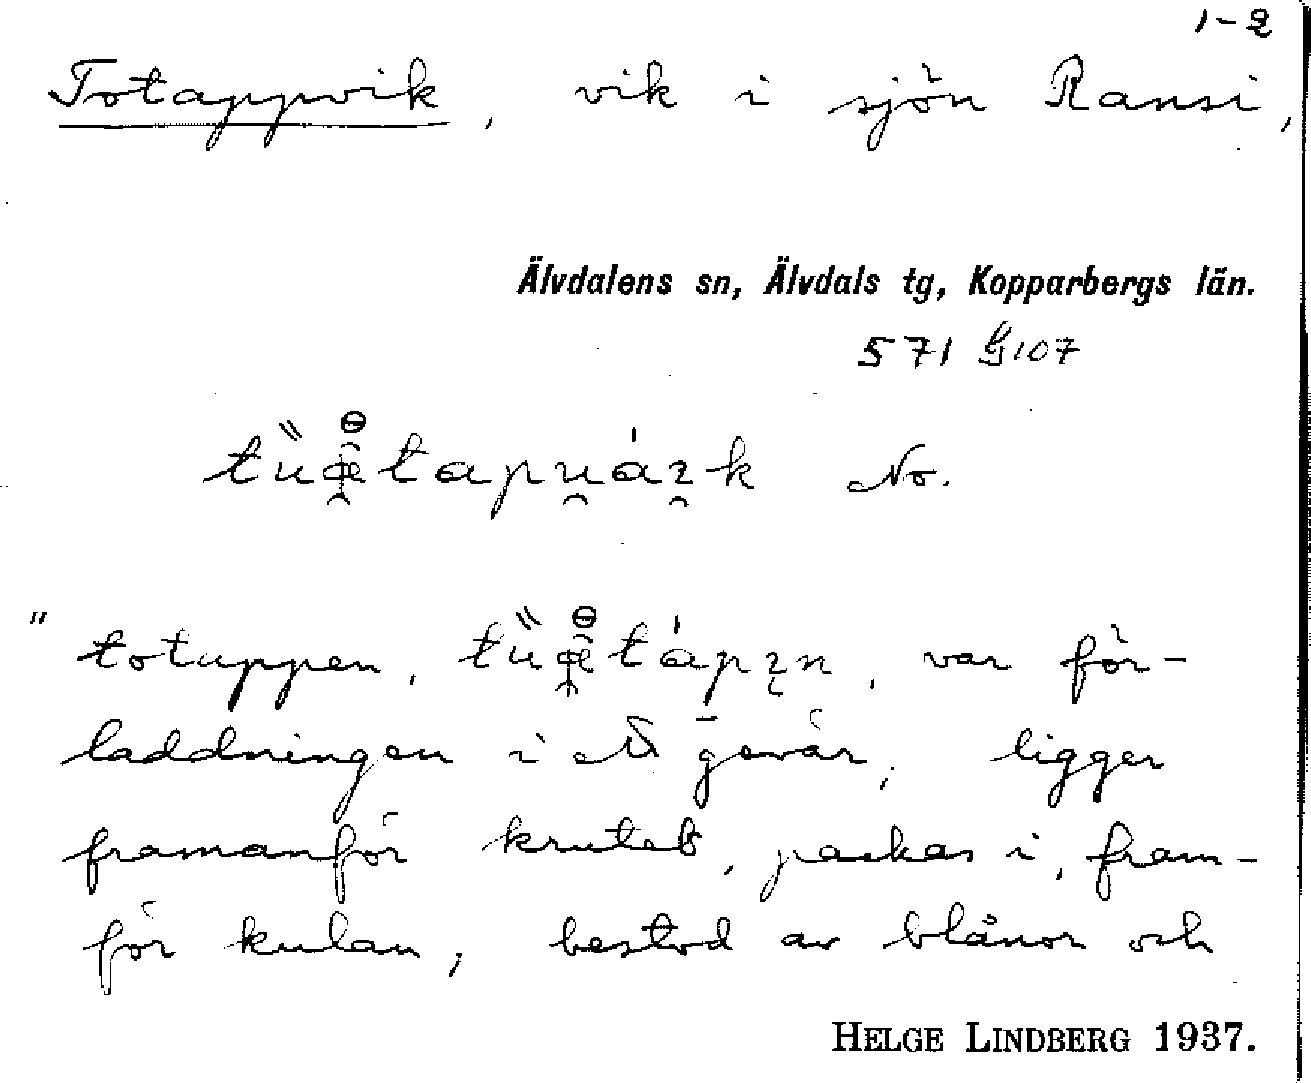 1-2
Totappvik, vik i sjön Ransi,
Älvdalens sn, Älvdals tg, Kopparbergs län.
571 107
No.
" totuppen, var för-
laddningen i ett gevär, ligger
framanför krutet, packas i, fram-
för kulan, bestod av blånor och
HELGE LINDBERG 1937.